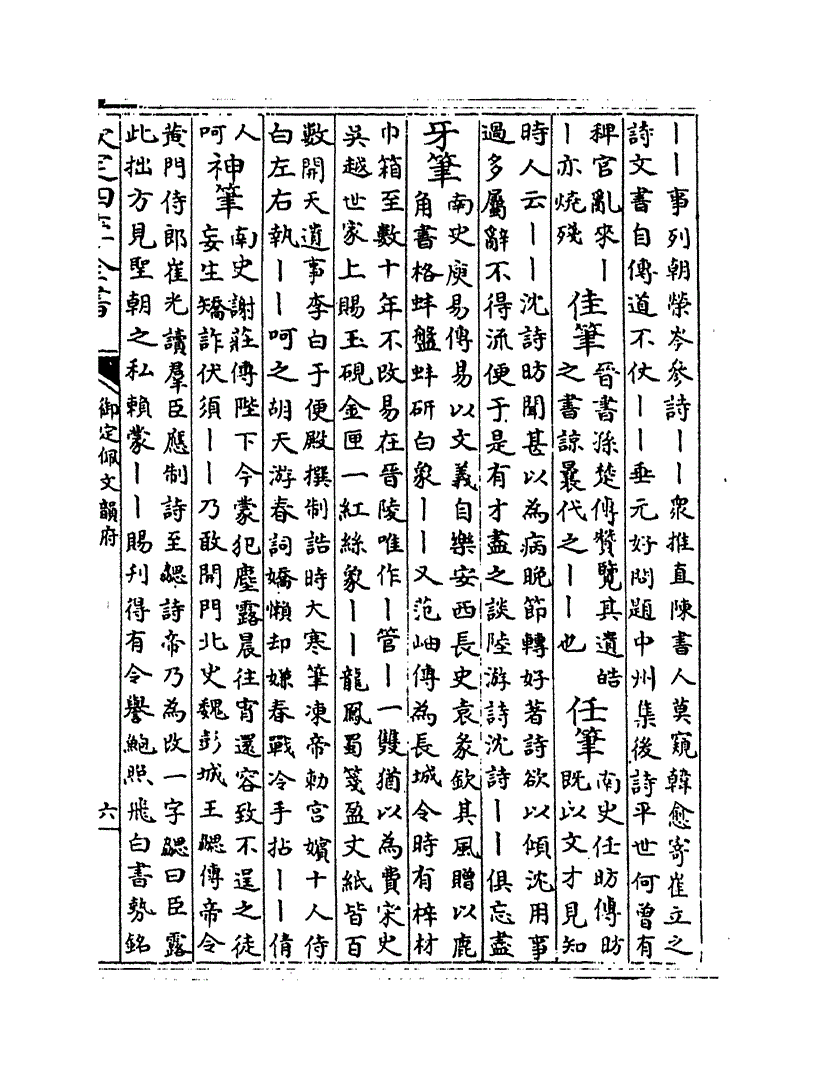 丨丨事列朝榮岑參詩丨丨衆推直陳書人莫窺韓愈寄崔立之
詩文書自傳道不仗丨丨垂元好問題中州集後詩平世何曾有
稗官亂來丨
丨亦燒殘
佳筆
晉書孫楚傳贊覽其遺皓
之書諒曩代之丨丨也
任筆
南史任昉傳昉
既以文才見知
時人云丨丨沈詩昉聞甚以為病晚節轉好著詩欲以傾沈用事
過多屬辭不得流便于是有才盡之談陸游詩沈詩丨丨俱忘盡
牙筆
南史庾易傳易以文義自樂安西長史袁彖欽其風贈以鹿
角書格蚌盤蚌研白象丨丨又范岫傳為長城令時有梓材
巾箱至數十年不改易在晉陵唯作丨管丨一雙猶以為費宋史
吳越世家上賜玉硯金匣一紅絲象丨丨龍鳳蜀箋盈丈紙皆百
數開天遺事李白于便殿撰制誥時大寒筆凍帝勅宮嬪十人侍
白左右執丨丨呵之胡天游春詞嬌懶却嫌春戰冷手拈丨丨倩
人
呵
神筆
南史謝莊傳陛下今蒙犯塵露晨往宵還容致不逞之徒
妄生矯詐伏須丨丨乃敢開門北史魏彭城王勰傳帝令
黄門侍郎崔光讀羣臣應制詩至勰詩帝乃為改一字勰曰臣露
此拙方見聖朝之私賴蒙丨丨賜刋得有令譽鮑照飛白書勢銘
欽定四庫全書
御定佩文韻府
六